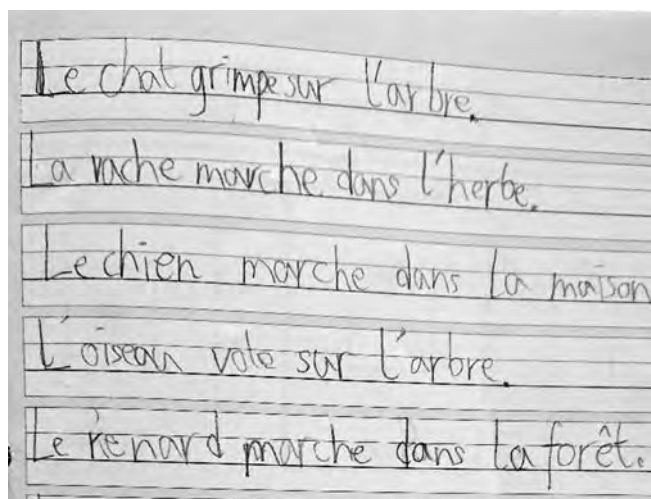 Le chat grimpe sur l'arbre.
La vache marche dans l'herbe.
Le chien marche dans la maison
L'oiseau vole sur l'arbre.
Le renard marche dans la forêt.